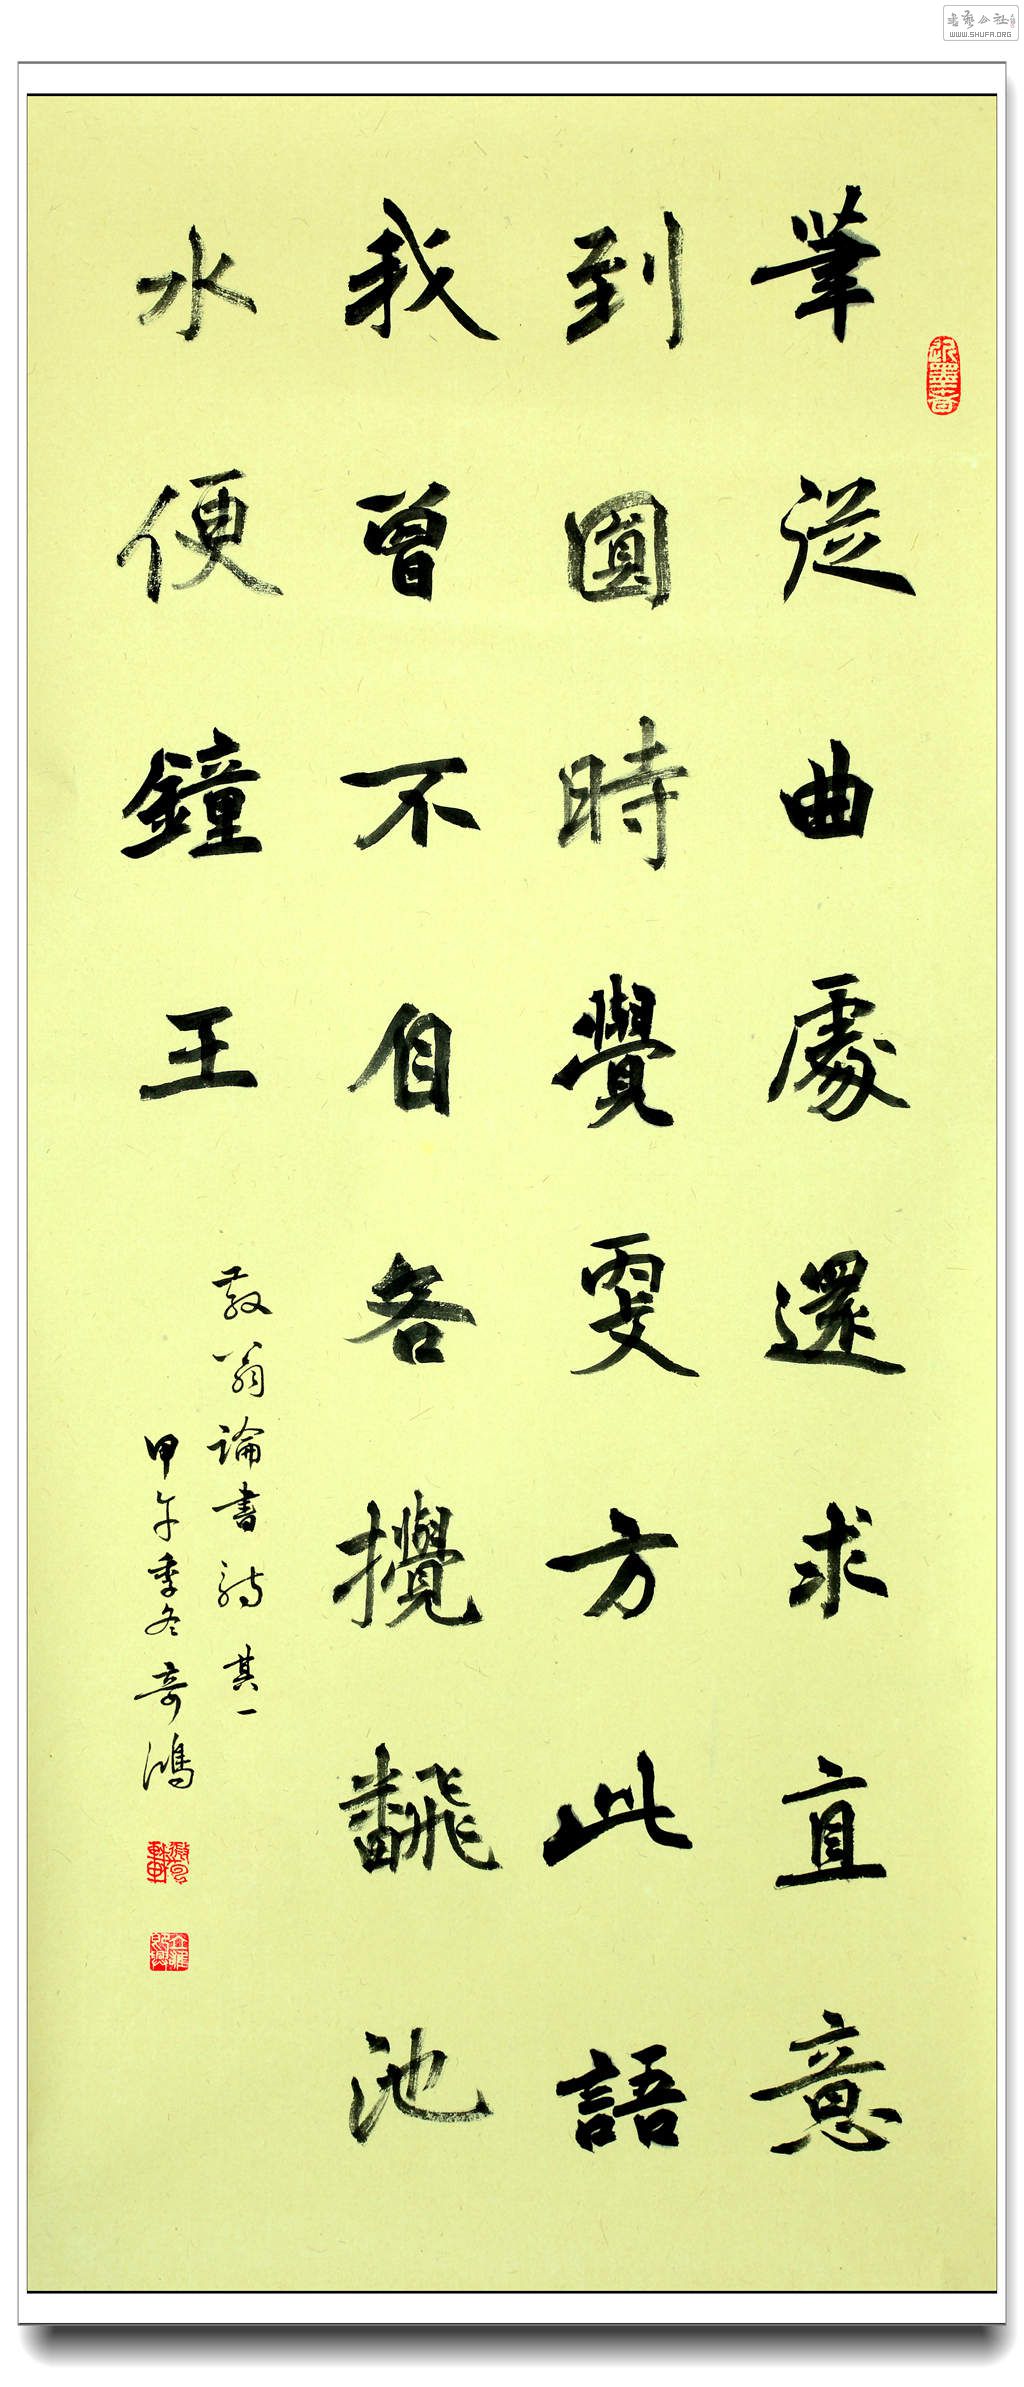 筆從曲處還求直意
到圓時覺更方此語
我曾不自吝攪飜池
水便鐘王
散翁論書詩其一
甲午季冬奇鴻
書藝公社
WWW.SHUFA.ORG